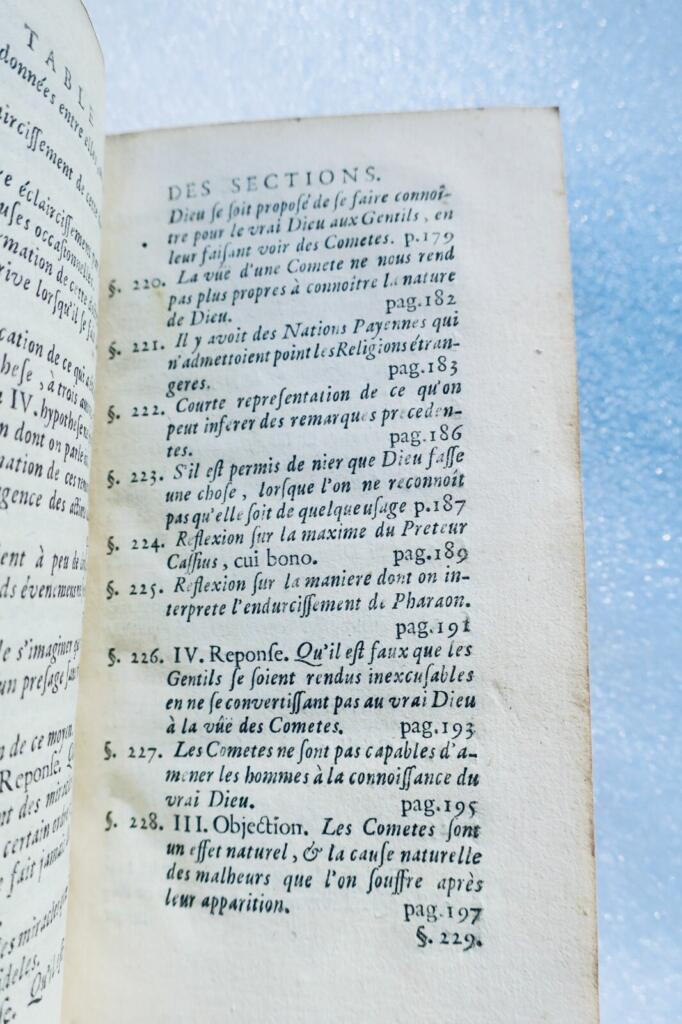 TABLE
données entre
ircissement de cette
re éclaircissement
uses occasionnelles.
rmation de cette
rive lorsqu'il se
cation de ce qui
hese, à trois
IV. hypothese
n dont on parle
nation de ces
gence des actions
ent à peu de
ds évenemens
le s'imaginer
un presage
n de ce moyen.
Reponse.
nt des miracles
certain
fait jamais
es miracles
ideles.
se. Qu'il est
DES SECTIONS.
Dieu se soit proposé de se faire connoî-
tre pour le vrai Dieu aux Gentils, en
leur faisant voir des Cometes. p.179
§. 220. La vûe d'une Comete ne nous rend
pas plus propres à connoître la nature
de Dieu. pag.182
§. 221. Il y avoit des Nations Payennes qui
n'admettoient point les Religions étran-
geres. pag.183
§. 222. Courte representation de ce qu'on
peut inferer des remarques preceden-
tes. pag.186
§. 223. S'il est permis de nier que Dieu fasse
une chose, lorsque l'on ne reconnoît
pas qu'elle soit de quelque usage p.187
§. 224. Reflexion sur la maxime du Preteur
Cassius, cui bono. pag.189
§. 225. Reflexion sur la maniere dont on in-
terprete l'endurcissement de Pharaon.
pag.191
§. 226. IV. Reponse. Qu'il est faux que les
Gentils se soient rendus inexcusables
en ne se convertissant pas au vrai Dieu
à la vûë des Cometes. pag.193
§. 227. Les Cometes ne sont pas capables d'a-
mener les hommes à la connoissance du
vrai Dieu. pag.195
§. 228. III. Objection. Les Cometes sont
un effet naturel, & la cause naturelle
des malheurs que l'on souffre après
leur apparition. pag.197
§. 229.